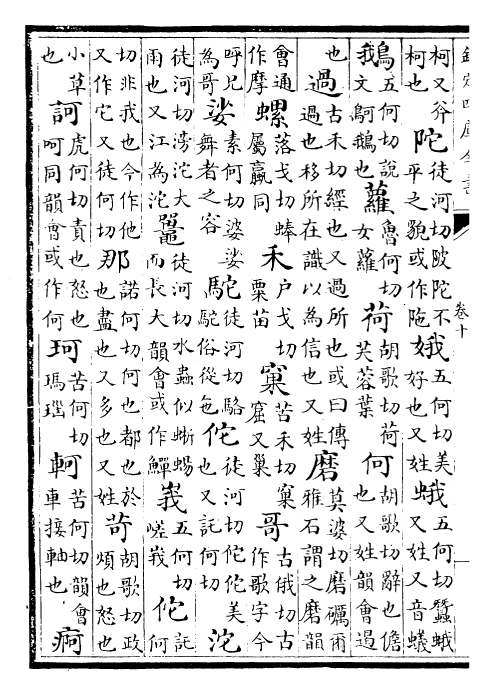 欽定四庫全書
卷十
柯又斧柯也陀徒河切陂陀不平之貌或作陁娥五何切美好也又姓蛾五何切蠶蛾又姓又音蟻
鵝五何切說文鴚鵝也蘿魯何切女蘿荷胡歌切荷芙蓉葉何胡歌切辭也儋也又姓韻會曷
也過古禾切經也又過所也或曰傳過也移所在識以為信也又姓磨莫婆切磨礪爾雅石謂之磨韻
會通作摩螺落戈切蜯屬蠃同禾戶戈切粟苗窠苦禾切窠窟又巢哥古俄切古作歌字今
呼兄為哥娑素何切婆娑舞者之容駝徒河切駱駝俗從㐌佗徒河切佗佗美也又託何切沱
徒河切滂沱大雨也又江為沱鼉徒河切水蟲似蜥蜴而長大韻會或作鱓峩五何切嵯峩佗託何
切非我也今作他又作它又徒何切那諾何切何也都也於也盡也又多也又姓苛胡歌切政煩也怒也
小草也訶虎何切責也怒也呵同韻會或作何珂苦何切瑪瑙軻苦何切韻會車接軸也痾